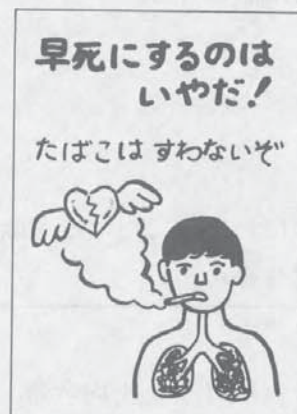 早死にするのは
いやだ！
たばこは すわないぞ